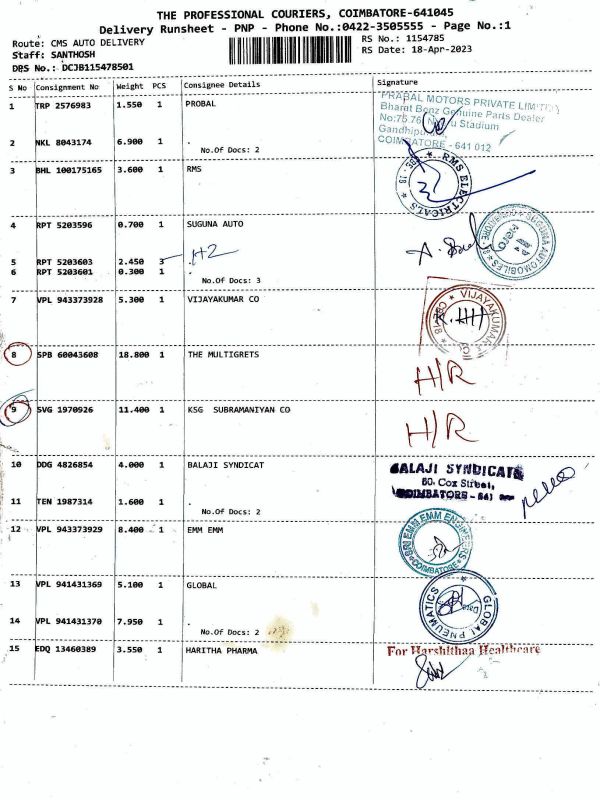 THE PROFESSIONAL COURIERS, COIMBATORE-641045
Delivery Runsheet - PNP - Phone No.:0422-3505555 - Page No.:1
Route: CMS AUTO DELIVERY
Staff: SANTHOSH
DRS No.: DCJB115478501
RS No.: 1154785
RS Date: 18-Apr-2023
S No Consignment No Weight PCS Consignee Details Signature
1 TRP 2576983 1.550 1 PROBAL
PRABAL MOTORS PRIVATE LIMITED
Bharat Benz Genuine Parts Dealer
Stadium
COIMBATORE - 641 012
2 NKL 8043174 6.900 1 .
No.Of Docs: 2
3 BHL 100175165 3.600 1 RMS
RMS ELECTRICALS
4 RPT 5203596 0.700 1 SUGUNA AUTO
SUGUNA AUTOMOBILES
Hero
H2
5 RPT 5203603 2.450 3
6 RPT 5203601 0.300 1 .
No.Of Docs: 3
7 VPL 943373928 5.300 1 VIJAYAKUMAR CO
VIJAYAKUMAR
8 SPB 60043608 18.800 1 THE MULTIGRETS
H/R
9 SVG 1970926 11.400 1 KSG SUBRAMANIYAN CO
H/R
10 DDG 4826854 4.000 1 BALAJI SYNDICAT
BALAJI SYNDICATE
60, Cox Street,
COIMBATORE - 641
11 TEN 1987314 1.600 1 .
No.Of Docs: 2
12 VPL 943373929 8.400 1 EMM EMM
SRI EMM EMM ENGINEERS
COIMBATORE
13 VPL 941431369 5.100 1 GLOBAL
GLOBAL PNEUMATICS
14 VPL 941431370 7.950 1 .
No.Of Docs: 2
15 EDQ 13460389 3.550 1 HARITHA PHARMA
For Harshithaa Healthcare